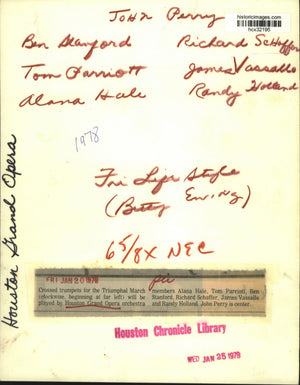 historicimages.com
hcx32195
John Perry
Ben Stanford Richard Schaffer
Tom Parriott James Vassallo
Alana Hale Randy Holland
1978
Fri Life Style
(Betty Ewing)
6 5/8x NEC
Houston Grand Opera
FRI JAN 20 1978
Crossed trumpets for the Triumphal March members Alana Hale, Tom Parriott, Ben
(clockwise, beginning at far left) will be Stanford, Richard Schaffer, James Vassallo
played by Houston Grand Opera orchestra and Randy Holland. John Perry is center.
Houston Chronicle Library
WED JAN 25 1978